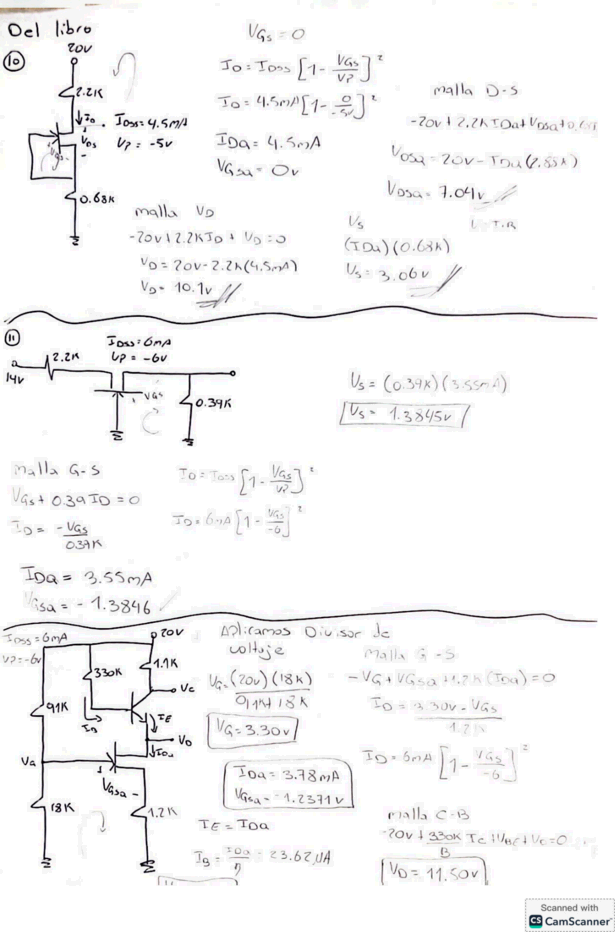 Del libro
10
20V
2.2K
ID
IDSS=4.5mA
VP = -5V
VDS
VGS
0.68K
VGS = 0
ID = IDSS [1 - VGS/VP]²
ID = 4.5mA [1 - 0/-5V]²
IDQ = 4.5mA
VGSQ = 0V
malla D-S
-20V + 2.2K IDQ + VDSQ + 0.68K
VDSQ = 20V - IDQ (2.88K)
VDSQ = 7.04V
malla VD
-20V + 2.2K ID + VD = 0
VD = 20V - 2.2K(4.5mA)
VD = 10.1V
VS
(IDQ)(0.68K)
VS = 3.06V
11
IDSS = 6mA
VP = -6V
2.2K
14V
VGS
0.39K
VS = (0.39K)(3.55mA)
VS = 1.3845V
Malla G-S
VGS + 0.39 ID = 0
ID = -VGS/0.39K
ID = IDSS [1 - VGS/VP]²
ID = 6mA [1 - VGS/-6]²
IDQ = 3.55mA
VGSQ = -1.3846
IDSS = 6mA
VP = -6V
20V
330K
1.1K
VC
91K
IB
IE
VD
IDQ
VG
VGSQ -
18K
1.2K
Aplicamos Divisor de
voltaje
VG = (20V)(18K)/91K+18K
VG = 3.30V
IDQ = 3.78mA
VGSQ = -1.2371V
IE = IDQ
= 23.62μA
Malla G-S
-VG + VGSQ + 1.2K (IDQ) = 0
ID = 3.30V - VGS/1.2K
ID = 6mA [1 - VGS/-6]²
malla C-B
-20V + 330K/B IC + VBE + VC = 0
VD = 11.50V
Scanned with
CS CamScanner